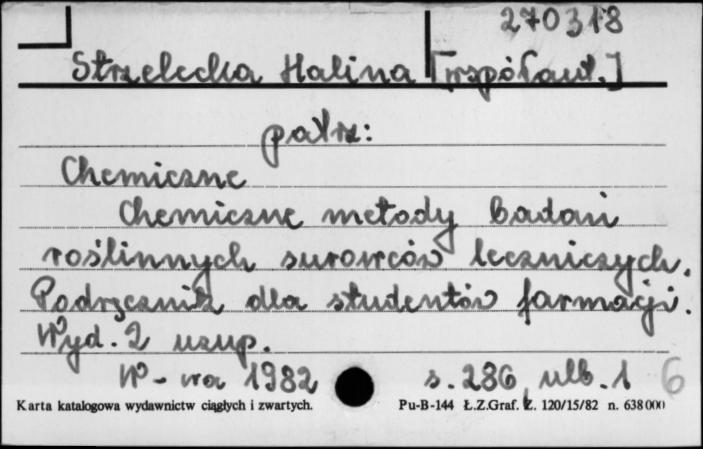 270318
Strzelecka Halina [współaut.]
patrz:
Chemiczne
Chemiczne metody badań
roślinnych surowców leczniczych.
Podręcznik dla studentów farmacji.
Wyd. 2 uzup.
W-wa 1982 s. 286, nlb. 1 6
Karta katalogowa wydawnictw ciągłych i zwartych. Pu-B-144 Ł.Z.Graf. Z. 120/15/82 n. 638000